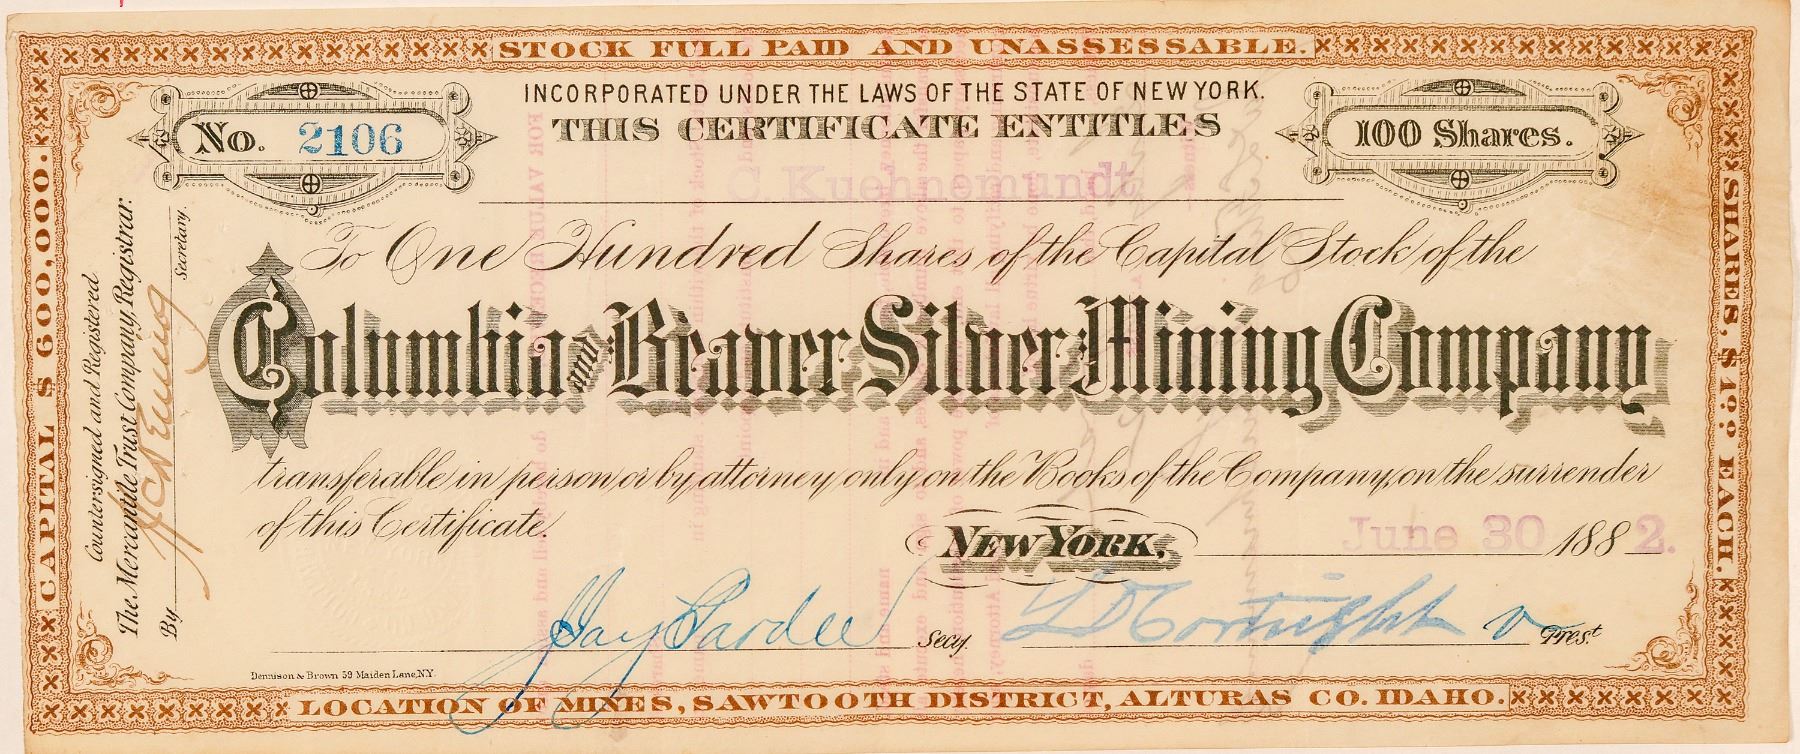 STOCK FULL PAID AND UNASSESSABLE.
INCORPORATED UNDER THE LAWS OF THE STATE OF NEW YORK.
No. 2106
THIS CERTIFICATE ENTITLES
100 Shares.
C Kuehnemundt
To One Hundred Shares of the Capital Stock of the
Columbia and Beaver Silver Mining Company
transferable in person or by attorney only on the Books of the Company, on the surrender
of this Certificate.
NEW YORK, June 30 1882.
Jay Pardee Secy.
L D Cortright v Prest
Dennison & Brown 59 Maiden Lane, N.Y.
LOCATION OF MINES, SAWTOOTH DISTRICT, ALTURAS CO. IDAHO.
CAPITAL $600,000.
Countersigned and Registered
The Mercantile Trust Company, Registrar.
By Secretary.
SHARES, $1.00 EACH.